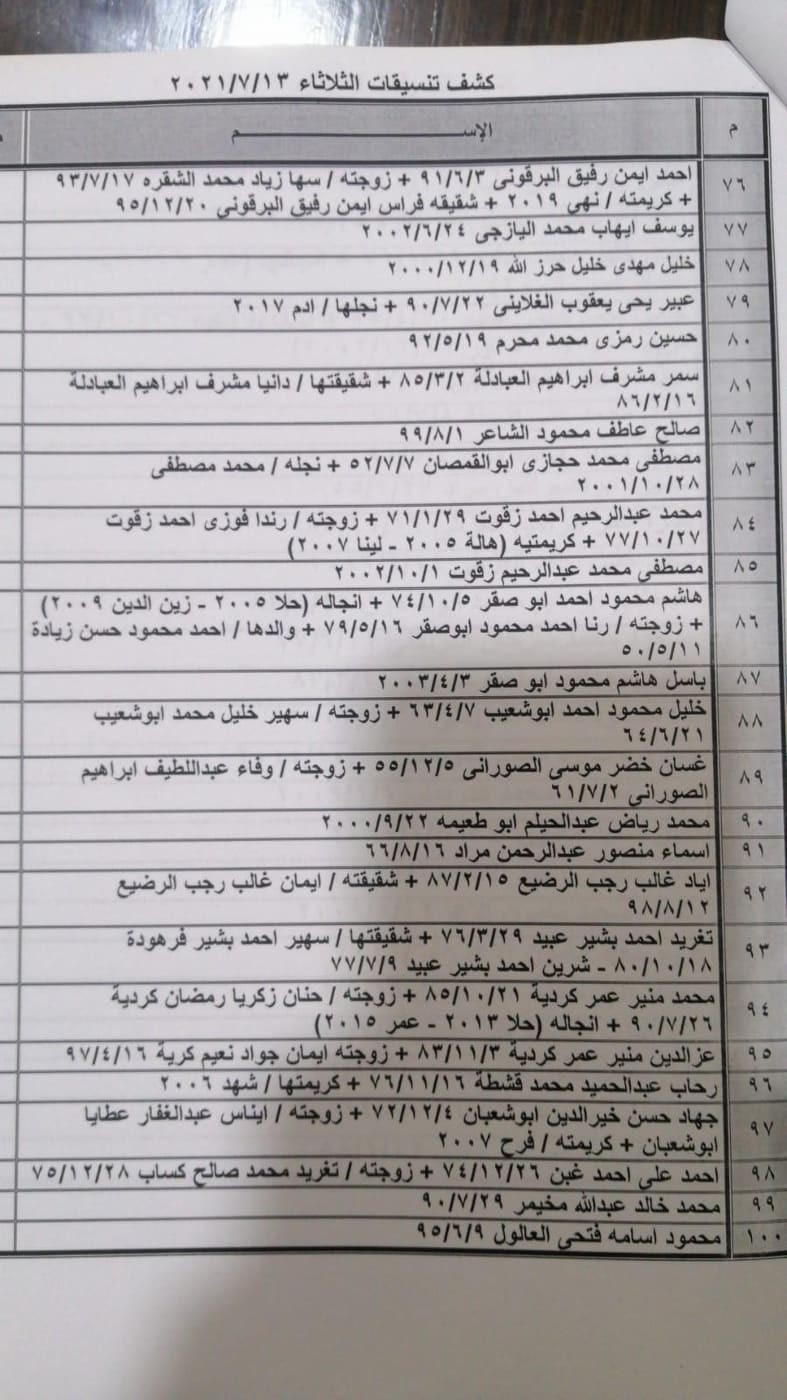 كشف تنسيقات الثلاثاء ٢٠٢١/٧/١٣
م الإســـــــــــــم
٧٦ احمد ايمن رفيق البرقونى ٩١/٦/٣ + زوجته / سها زياد محمد الشقره ٩٣/٧/١٧
+ كريمته / نهى ٢٠١٩ + شقيقه فراس ايمن رفيق البرقونى ٩٥/١٢/٢٠
٧٧ يوسف ايهاب محمد اليازجى ٢٠٠٢/٦/٢٤
٧٨ خليل مهدى خليل حرز الله ٢٠٠٠/١٢/١٩
٧٩ عبير يحى يعقوب الغلاينى ٩٠/٧/٢٢ + نجلها / ادم ٢٠١٧
٨٠ حسين رمزى محمد محرم ٩٢/٥/١٩
٨١ سمر مشرف ابراهيم العبادلة ٨٥/٣/٢ + شقيقتها / دانيا مشرف ابراهيم العبادلة
٨٦/٢/١٦
٨٢ صالح عاطف محمود الشاعر ٩٩/٨/١
٨٣ مصطفى محمد حجازى ابوالقمصان ٥٢/٧/٧ + نجله / محمد مصطفى
٢٠٠١/١٠/٢٨
٨٤ محمد عبدالرحيم احمد زقوت ٧١/١/٢٩ + زوجته / رندا فوزى احمد زقوت
٧٧/١٠/٢٧ + كريمتيه (هالة ٢٠٠٥ - لينا ٢٠٠٧)
٨٥ مصطفى محمد عبدالرحيم زقوت ٢٠٠٢/١٠/١
٨٦ هاشم محمود احمد ابو صقر ٧٤/١٠/٥ + انجاله (حلا ٢٠٠٥ - زين الدين ٢٠٠٩)
+ زوجته / رنا احمد محمود ابوصقر ٧٩/٥/١٦ + والدها / احمد محمود حسن زيادة
٥٠/٥/١١
٨٧ باسل هاشم محمود ابو صقر ٢٠٠٣/٤/٣
٨٨ خليل محمود احمد ابوشعيب ٦٣/٤/٧ + زوجته / سهير خليل محمد ابوشعيب
٦٤/٦/٢١
٨٩ غسان خضر موسى الصورانى ٥٥/١٢/٥ + زوجته / وفاء عبداللطيف ابراهيم
الصورانى ٦١/٧/٢
٩٠ محمد رياض عبدالحيلم ابو طعيمه ٢٠٠٠/٩/٢٢
٩١ اسماء منصور عبدالرحمن مراد ٦٦/٨/١٦
٩٢ اياد غالب رجب الرضيع ٨٧/٢/١٥ + شقيقته / ايمان غالب رجب الرضيع
٩٨/٨/١٢
٩٣ تغريد احمد بشير عبيد ٧٦/٣/٢٩ + شقيقتها / سهير احمد بشير فرهودة
٨٠/١٠/١٨ - شرين احمد بشير عبيد ٧٧/٧/٩
٩٤ محمد منير عمر كردية ٨٥/١٠/٢١ + زوجته / حنان زكريا رمضان كردية
٩٠/٧/٢٦ + انجاله (حلا ٢٠١٣ - عمر ٢٠١٥)
٩٥ عزالدين منير عمر كردية ٨٣/١١/٣ + زوجته ايمان جواد نعيم كرية ٩٧/٤/١٦
٩٦ رحاب عبدالحميد محمد قشطة ٧٦/١١/١٦ + كريمتها / شهد ٢٠٠٦
٩٧ جهاد حسن خيرالدين ابوشعبان ٧٢/١٢/٤ + زوجته / ايناس عبدالغفار عطايا
ابوشعبان + كريمته / فرح ٢٠٠٧
٩٨ احمد على احمد غبن ٧٤/١٢/٢٦ + زوجته / تغريد محمد صالح كساب ٧٥/١٢/٢٨
٩٩ محمد خالد عبدالله مخيمر ٩٠/٧/٢٩
١٠٠ محمود اسامه فتحى العالول ٩٥/٦/٩